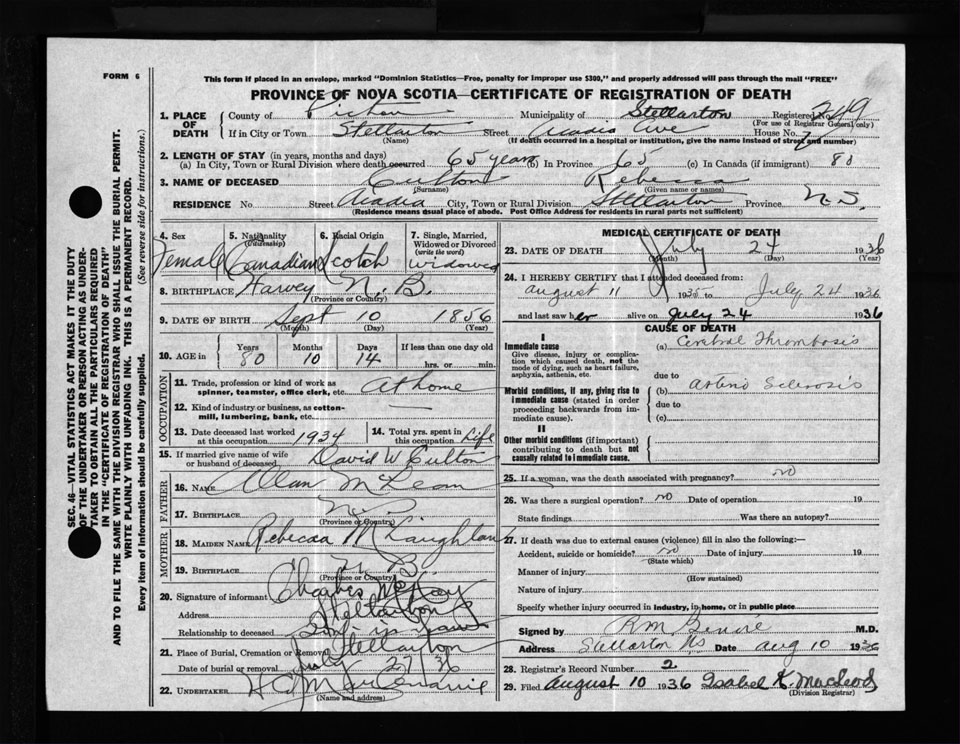 FORM 6
This form if placed in an envelope, marked "Dominion Statistics—Free, penalty for improper use $300," and properly addressed will pass through the mail "FREE"
PROVINCE OF NOVA SCOTIA—CERTIFICATE OF REGISTRATION OF DEATH
SEC. 46—VITAL STATISTICS ACT MAKES IT THE DUTY
OF THE UNDERTAKER OR PERSON ACTING AS UNDER-
TAKER TO OBTAIN ALL THE PARTICULARS REQUIRED
IN THE "CERTIFICATE OF REGISTRATION OF DEATH"
AND TO FILE THE SAME WITH THE DIVISION REGISTRAR WHO SHALL ISSUE THE BURIAL PERMIT.
WRITE PLAINLY WITH UNFADING INK. THIS IS A PERMANENT RECORD.
Every item of information should be carefully supplied. (See reverse side for instructions.)
1. PLACE OF DEATH
County of Pictou Municipality of Stellarton Registered No. 249
(For use of Registrar General only)
If in City or Town Stellarton Street Acadia Ave House No.
(Name) (If death occurred in a hospital or institution, give the name instead of street and number)
2. LENGTH OF STAY (in years, months and days)
(a) In City, Town or Rural Division where death occurred 65 years (b) In Province 65 (c) In Canada (if immigrant) 80
3. NAME OF DECEASED Culton Rebecca
(Surname) (Given name or names)
RESIDENCE No. Street Acadia City, Town or Rural Division Stellarton Province N.S.
(Residence means usual place of abode. Post Office Address for residents in rural parts not sufficient)
4. Sex 5. Nationality (Citizenship) 6. Racial Origin 7. Single, Married, Widowed or Divorced (write the word)
Female Canadian Scotch Widowed
8. BIRTHPLACE Harvey N.B.
(Province or Country)
9. DATE OF BIRTH Sept 10 1856
(Month) (Day) (Year)
10. AGE in Years Months Days If less than one day old
80 10 14 hrs. or min.
OCCUPATION
11. Trade, profession or kind of work as spinner, teamster, office clerk, etc. At home
12. Kind of industry or business, as cotton-mill, lumbering, bank, etc. —
13. Date deceased last worked at this occupation 1934 14. Total yrs. spent in this occupation Life
15. If married give name of wife or husband of deceased David W Culton
FATHER
16. NAME Allan McLean
17. BIRTHPLACE
(Province or Country)
MOTHER
18. MAIDEN NAME Rebecca McLaughlan
19. BIRTHPLACE N.B.
(Province or Country)
20. Signature of informant Charles McKay
Address Stellarton
Relationship to deceased Son in law
21. Place of Burial, Cremation or Removal Stellarton
Date of burial or removal July 27 36
22. UNDERTAKER
(Name and address)
MEDICAL CERTIFICATE OF DEATH
23. DATE OF DEATH July 24 1936
(Month) (Day) (Year)
24. I HEREBY CERTIFY that I attended deceased from:
August 11 1935 to July 24 1936
and last saw her alive on July 24 1936
CAUSE OF DEATH
I
Immediate cause (a) Cerebral Thrombosis
Give disease, injury or complication which caused death, not the mode of dying, such as heart failure, asphyxia, asthenia, etc.
due to
Morbid conditions, if any, giving rise to immediate cause (stated in order proceeding backwards from immediate cause). (b) Arterio Sclerosis
due to
(c)
II
Other morbid conditions (if important) contributing to death but not causally related to immediate cause.
25. If a woman, was the death associated with pregnancy? no
26. Was there a surgical operation? no Date of operation 19
State findings Was there an autopsy?
27. If death was due to external causes (violence) fill in also the following:—
Accident, suicide or homicide? no Date of injury 19
(State which)
Manner of injury
(How sustained)
Nature of injury
Specify whether injury occurred in industry, in home, or in public place
Signed by R M Benvie M.D.
Address Stellarton NS Date Aug 10 1936
28. Registrar's Record Number 2
29. Filed August 10 1936 Isabel K. MacLeod
(Division Registrar)